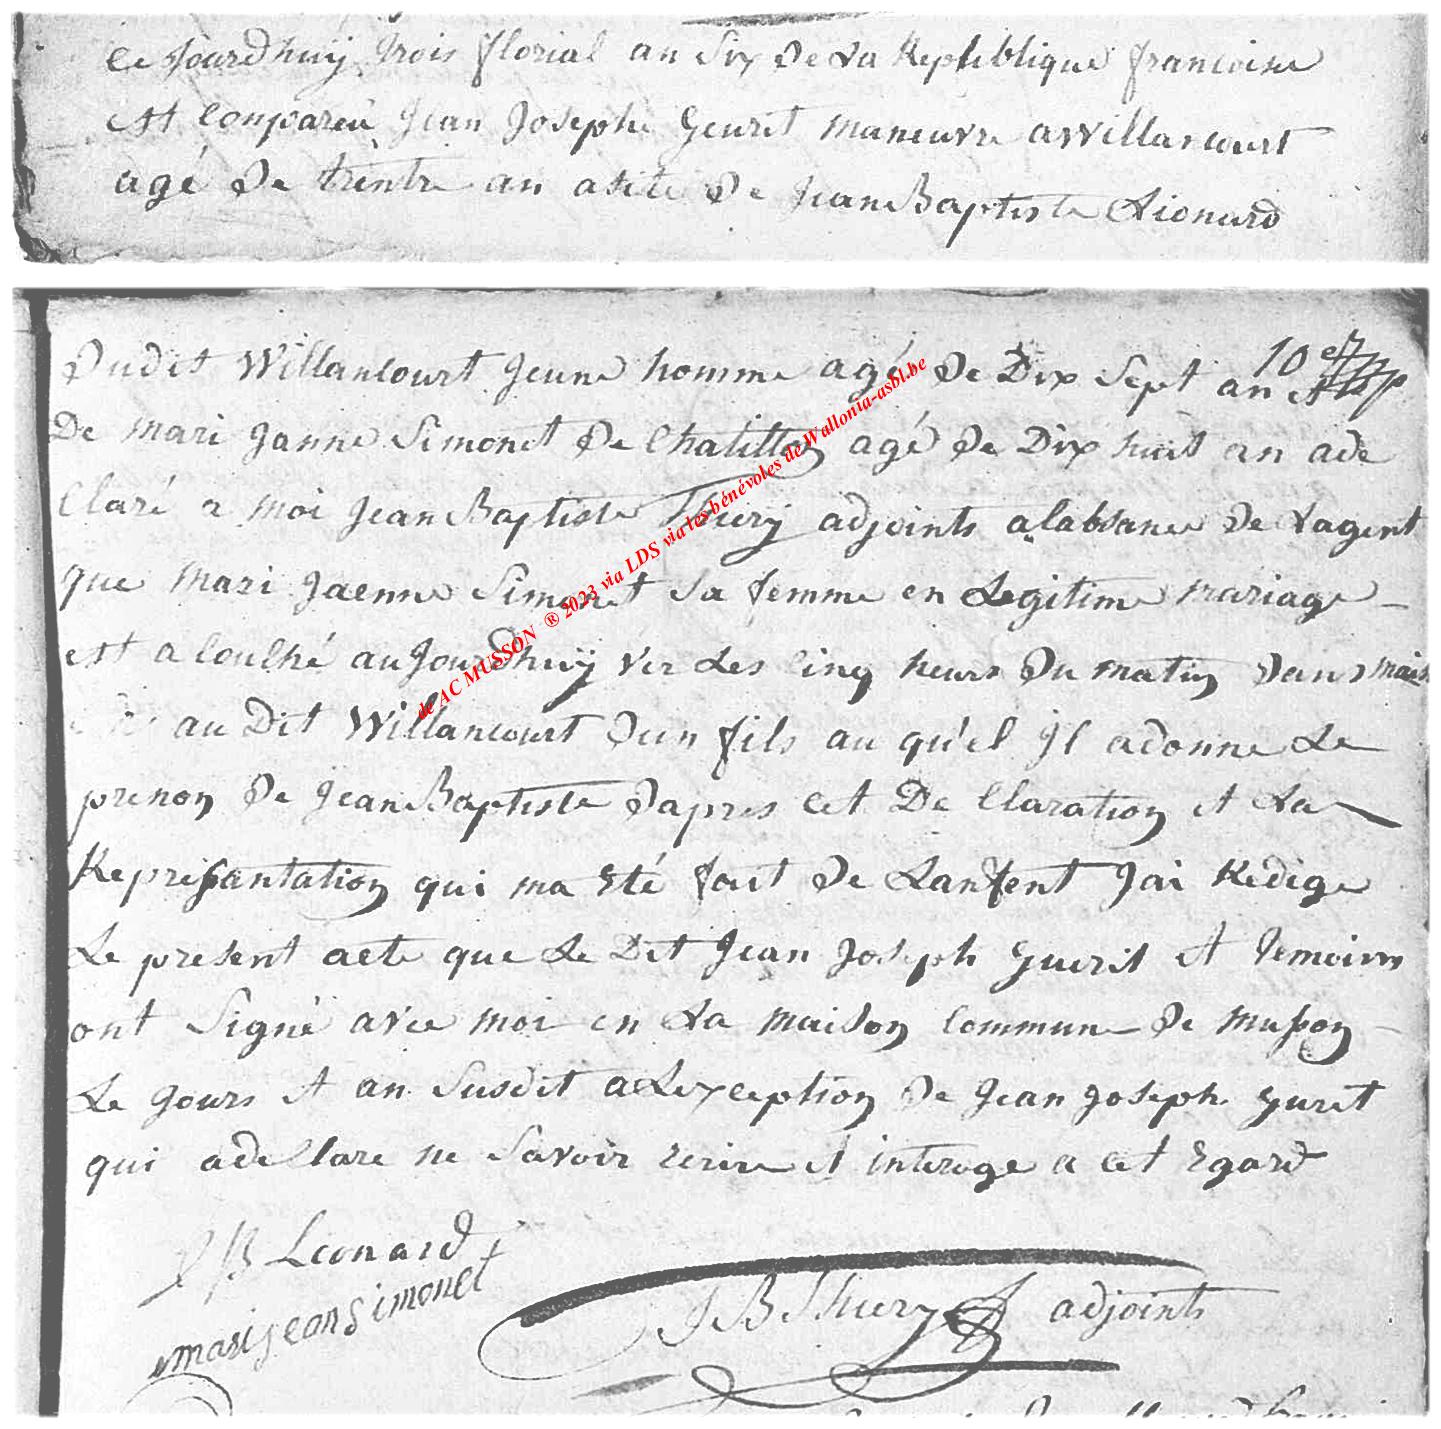 Ce Jourdhuÿ trois florial an Six de La Republique francoise
est Compareu Jean Joseph Gueurit maneuvre a Willancourt
agé de trente an asiste de Jean Baptiste Lionard
Dudit Willancourt Jeune homme agé de Dix Sept an et
10 e
De mari Janne Simonet de Chatillon agé de Dix huit an a de
Claré a moi Jean Baptiste Thierÿ adjoints a labsance de Lagent
que mari Jaenne Simonet Sa femme en Legitime mariage
est a Couché au Jourdhuÿ ver Les Cinq heurs du matin dans mais
au Dit Willancourt Dun fils au qu'el Jl a donne Le
prenon de Jean Baptiste Dapres cet De Claration et La
Representation qui ma Eté fait de Lanfent Jai Redige
Le present acte que Le Dit Jean Joseph Guerit et temoins
ont Signé avec moi en La maison Commune de Musson
Le Jours et an Susdit a Lexception de Jean Joseph Guret
qui a declare ne Savoir Ecrire et interoge a cet Egard
J B Leonard
mari jean Simonet
J B Thiery adjoints
de AC MUSSON ® 2023 via LDS via les bénévoles de Wallonia-asbl.be